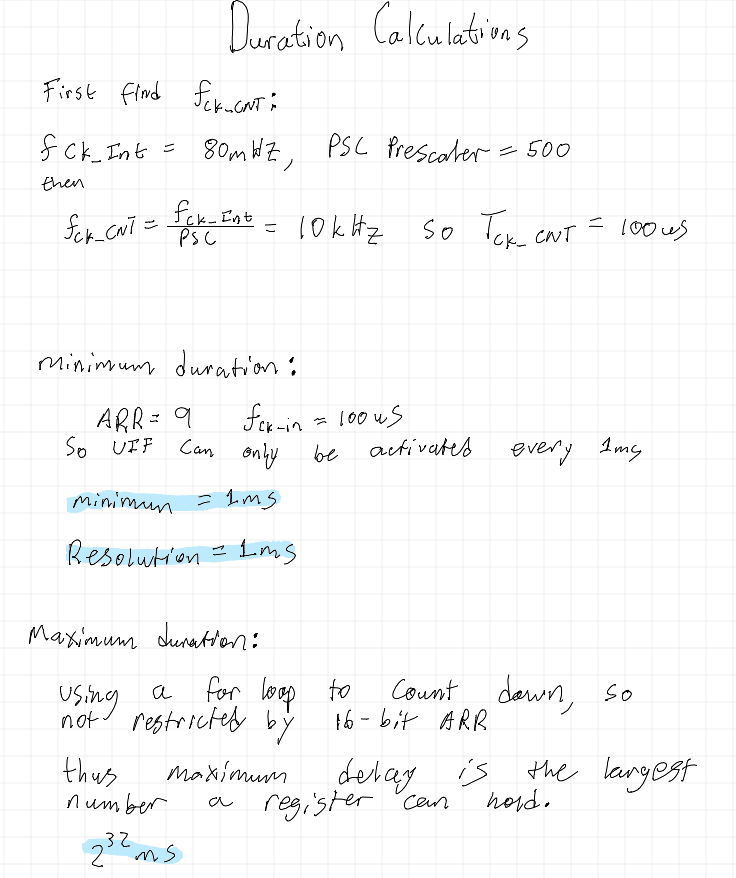 Duration Calculations
First find f_ck_CNT:
f Ck_Int = 80mHz, PSC Prescaler = 500
then
f_ck_CNT = f_ck_Int / PSC = 10kHz so T_ck_CNT = 100us
minimum duration:
ARR = 9 f_ck-in = 100us
So UIF can only be activated every 1ms
minimum = 1ms
Resolution = 1ms
Maximum duration:
using a for loop to count down, so
not restricted by 16-bit ARR
thus maximum delay is the largest
number a register can hold.
2^32 ms